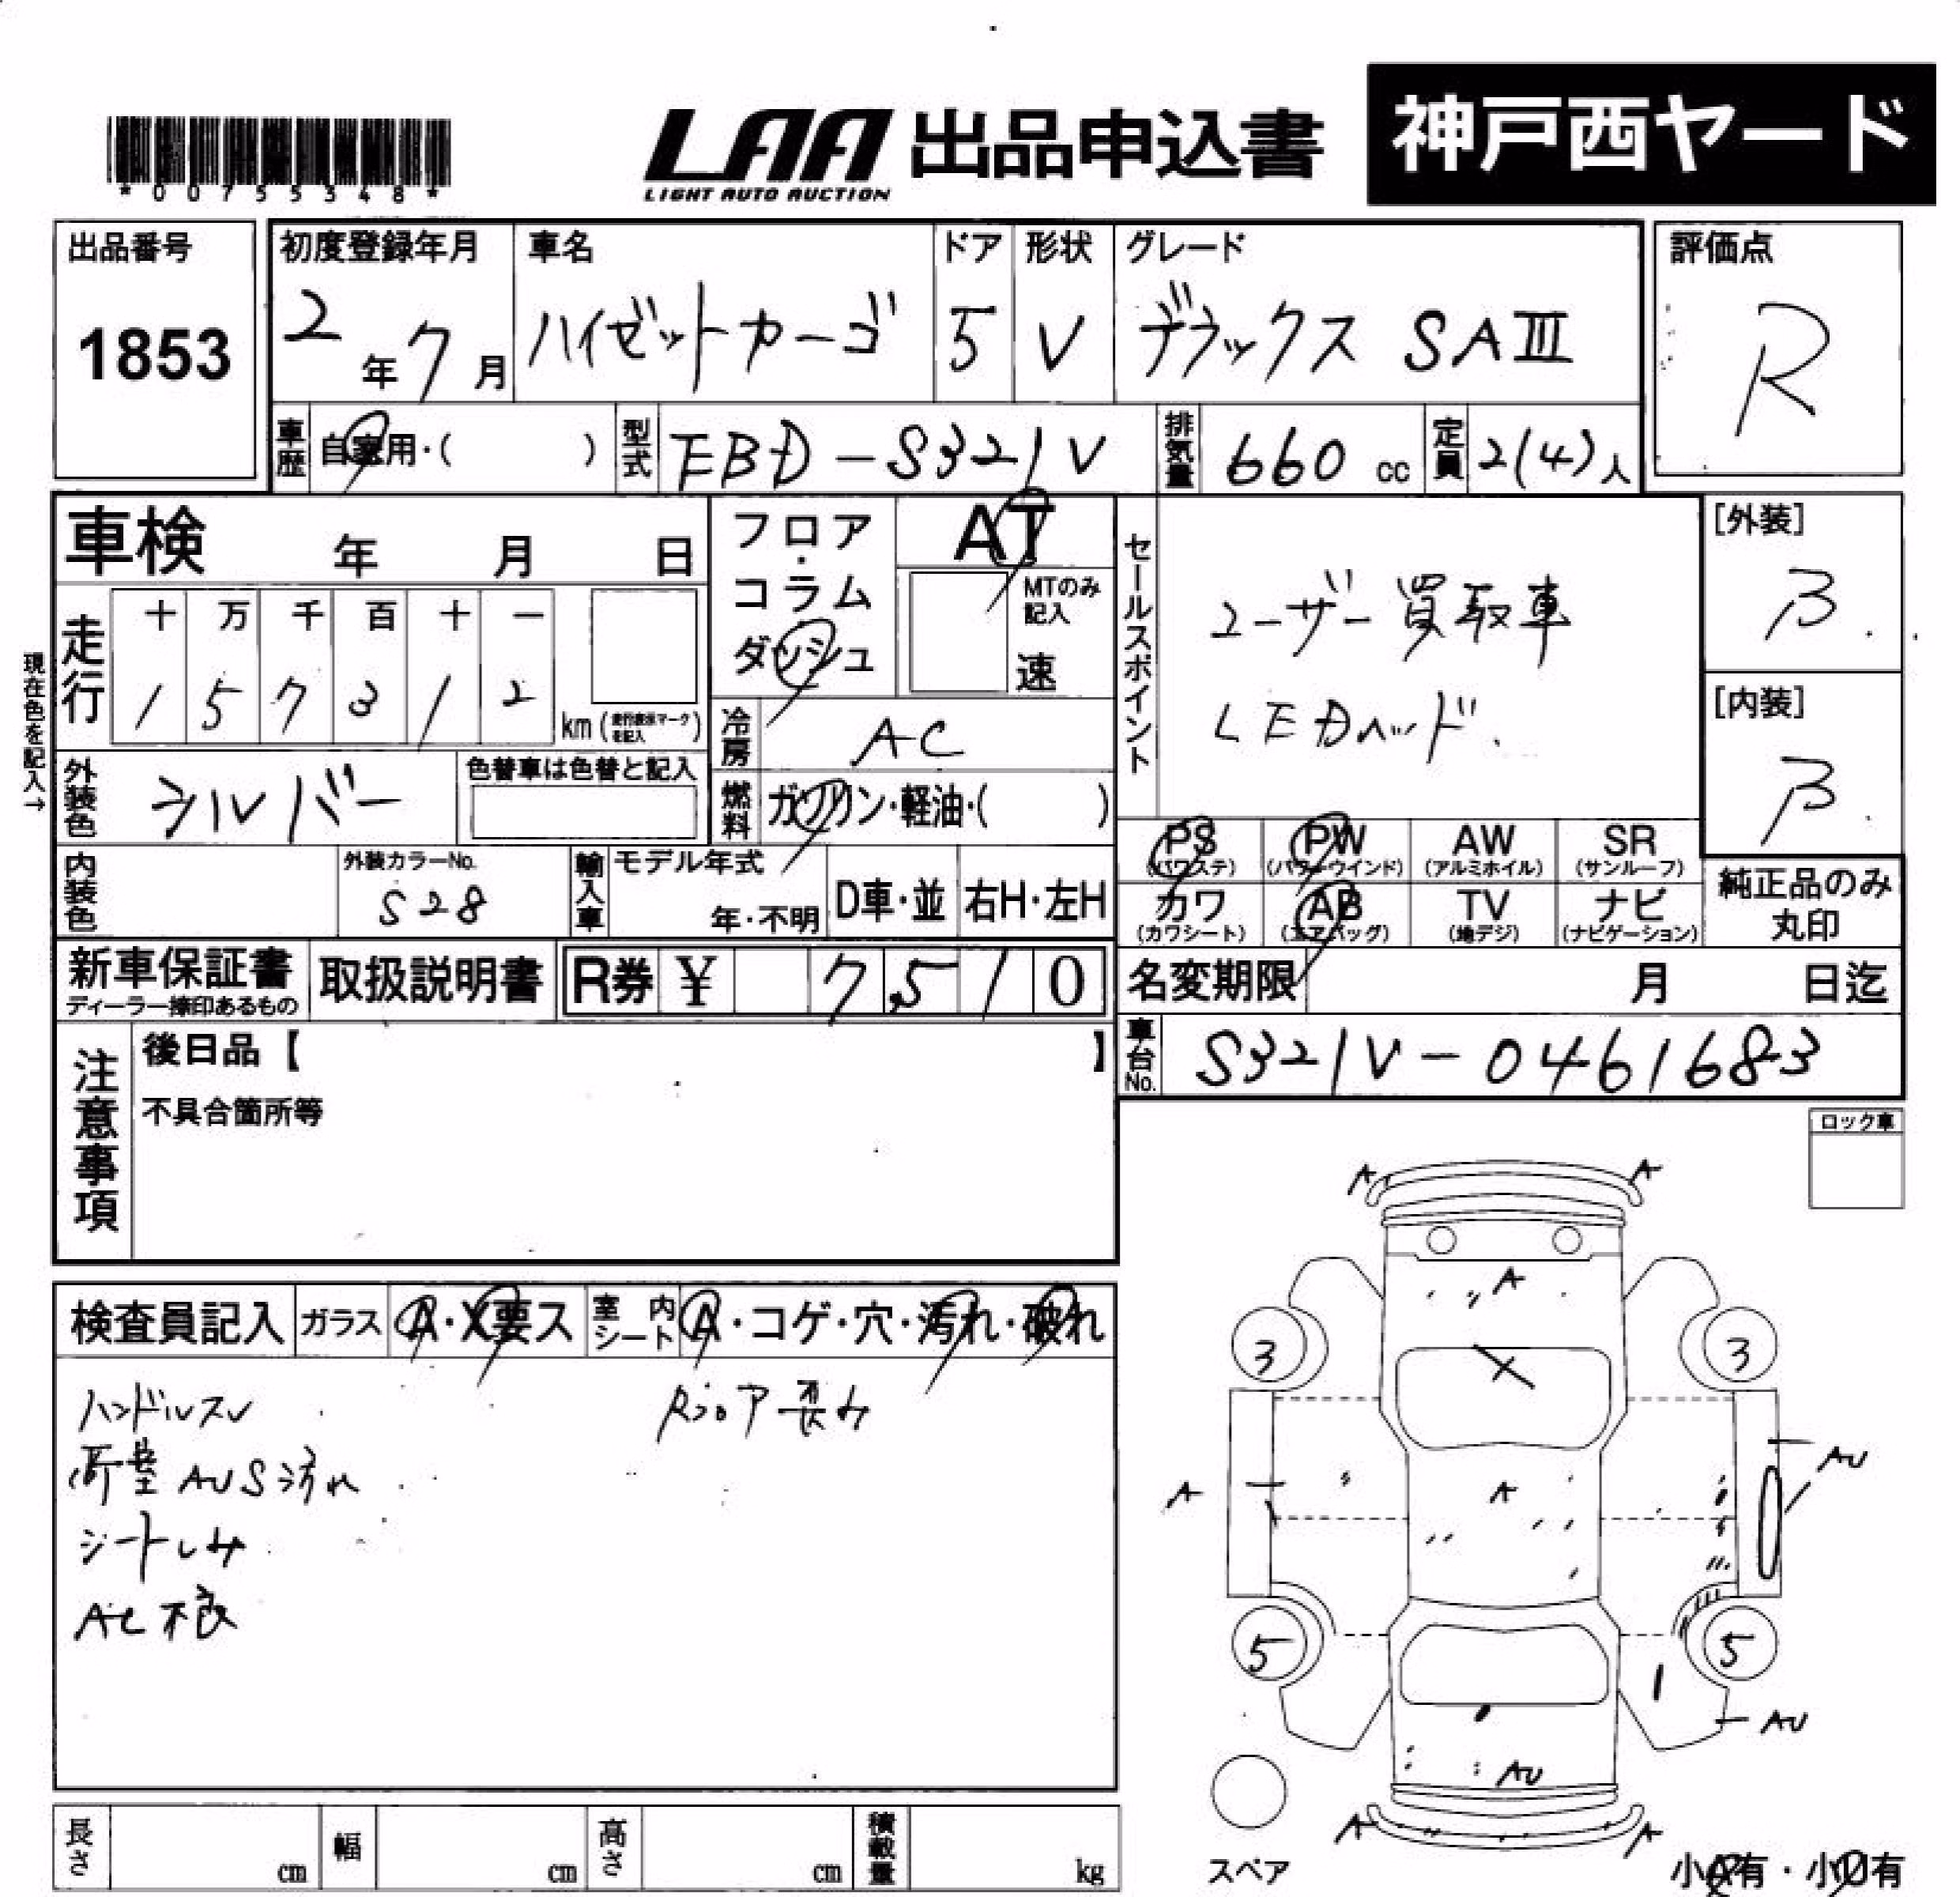 *00755348*
LAA 出品申込書 神戸西ヤード
LIGHT AUTO AUCTION
出品番号 1853
初度登録年月 2年7月
車名 ハイゼットカーゴ
ドア 5
形状 V
グレード デラックス SAⅢ
評価点 R
車歴 自家用・( )
型式 EBD-S321V
排気量 660 cc
定員 2(4)人
車検 年 月 日
フロア・コラム ダッシュ
AT
MTのみ記入 速
セールスポイント
ユーザー買取車
LEDヘッド.
[外装] B
[内装] B
現在色を記入→
走行 十 万 千 百 十 一
1 5 7 3 1 2 km(走行表示マークを記入)
冷房 AC
外装色 シルバー
色替車は色替と記入
燃料 ガソリン・軽油・( )
内装色
外装カラーNo. S28
輸入車 モデル年式 年・不明
D車・並 右H・左H
PS (パワステ) PW (パワーウインド) AW (アルミホイル) SR (サンルーフ)
カワ (カワシート) AB (エアバッグ) TV (地デジ) ナビ (ナビゲーション)
純正品のみ丸印
新車保証書
ディーラー捺印あるもの
取扱説明書
R券 ¥ 7,510
名変期限 月 日迄
車台No. S321V-0461683
注意事項
後日品【 】
不具合箇所等
ロック車
検査員記入 ガラス A・X要ス 室内シート A・コゲ・穴・汚れ・破れ
ハンドルスレ
荷室 AUS汚れ
シートしみ
AC不良
Rフロア歪み
A A
A
3 X 3
A A AU
5 5
AU
AU
A A
スペア
小A有・小U有
長さ cm 幅 cm 高さ cm 積載量 kg